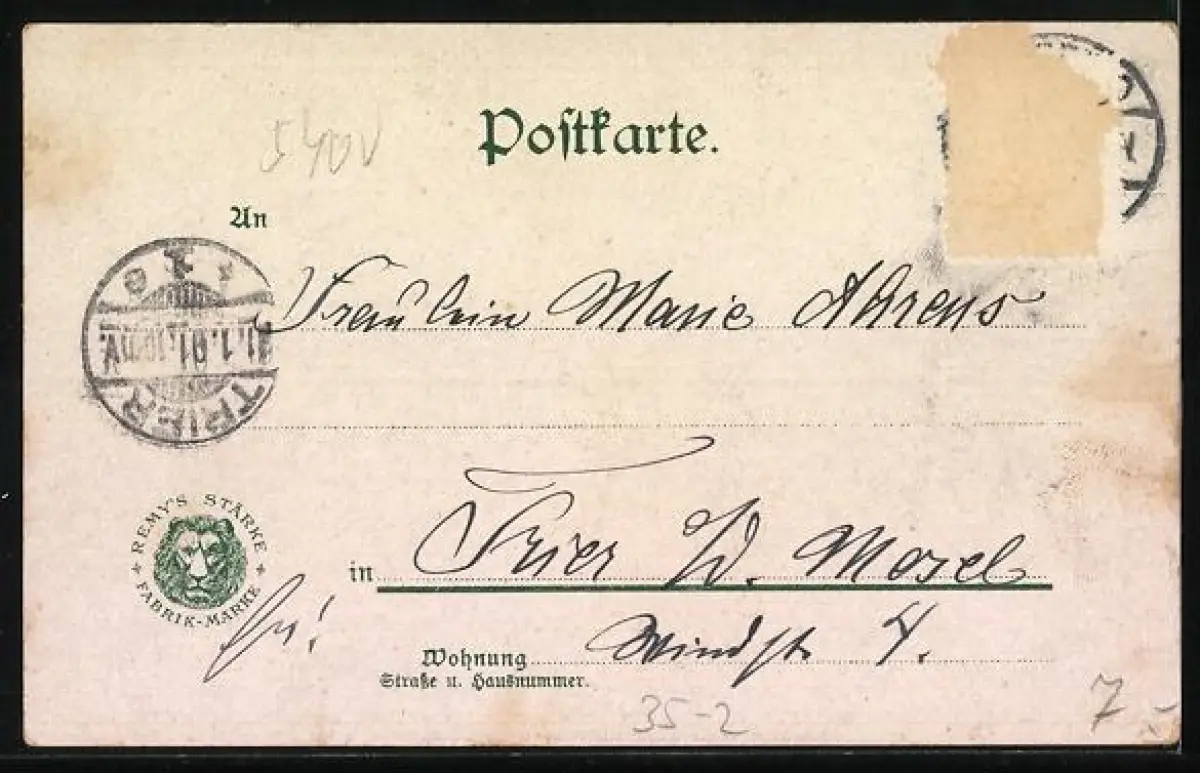 Postkarte.
5400
An
Fräulein Marie Ahrens
TRIER
1.1.01
REMY'S STÄRKE
FABRIK-MARKE
in Trier a/d. Mosel
Wohnung Windstr 4.
Straße u. Hausnummer.
35-2
7-